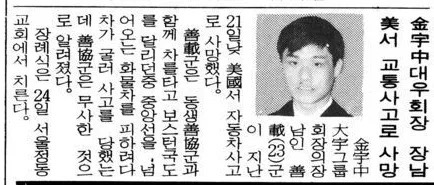 金宇中대우회장 장남
美서 교통사고로 사망
金宇中
大宇그룹
회장의장
남인 善
載(23)군
이 지난
21일낮 美國서 자동차사고
로 사망했다.
善載군은 동생善協군과
함께 차를타고 보스턴국도
를 달리던중 중앙선을 넘
어오는 화물차를 피하려다
차가 굴러 사고를 당했는
데 善協군은 무사한 것으
로 알려졌다.
장례식은 24일 서울정동
교회에서 치른다.